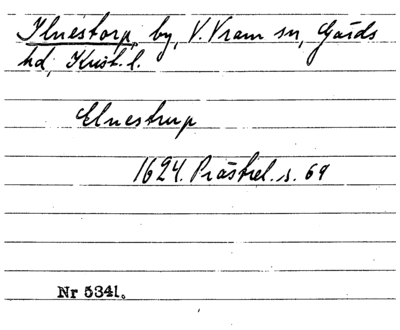 Ilnestorp, by, V. Vram sn, Gärds
hd, Krist. l.
Elnestrup
1624. Prästrel. s. 69
Nr 5341.